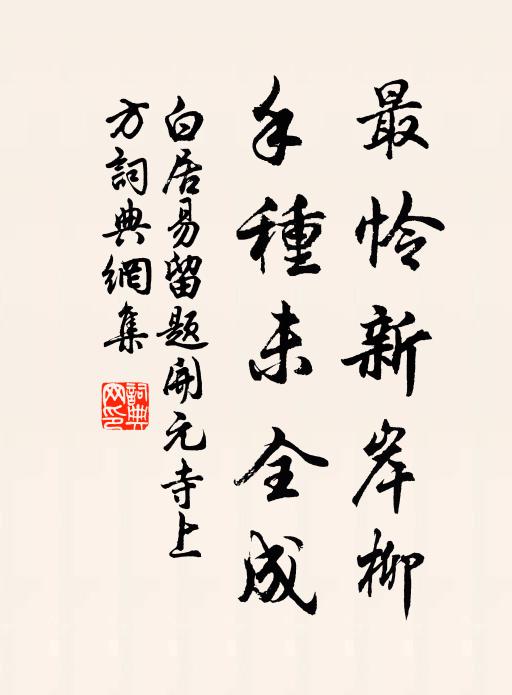 最怜新岸柳
手種未全成
白居易留題開元寺上
方詞典網集
詞典
网印